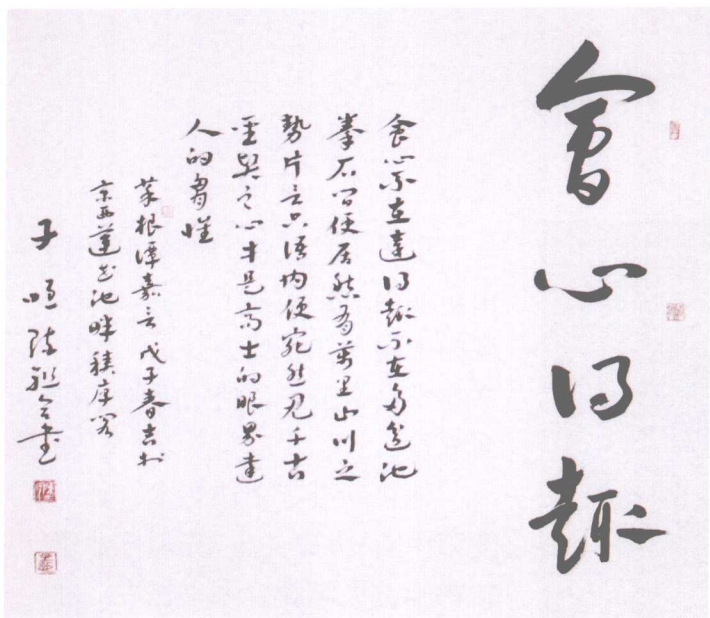 會心得趣
會心不在遠得趣不在多盆池
拳石間便居然有萬里山川之
勢片言只語内便宛然見千古
聖賢之心才是高士的眼界達
人的胷懷
菜根譚嘉言戊子春吉於
京西蓮花池畔
子 書